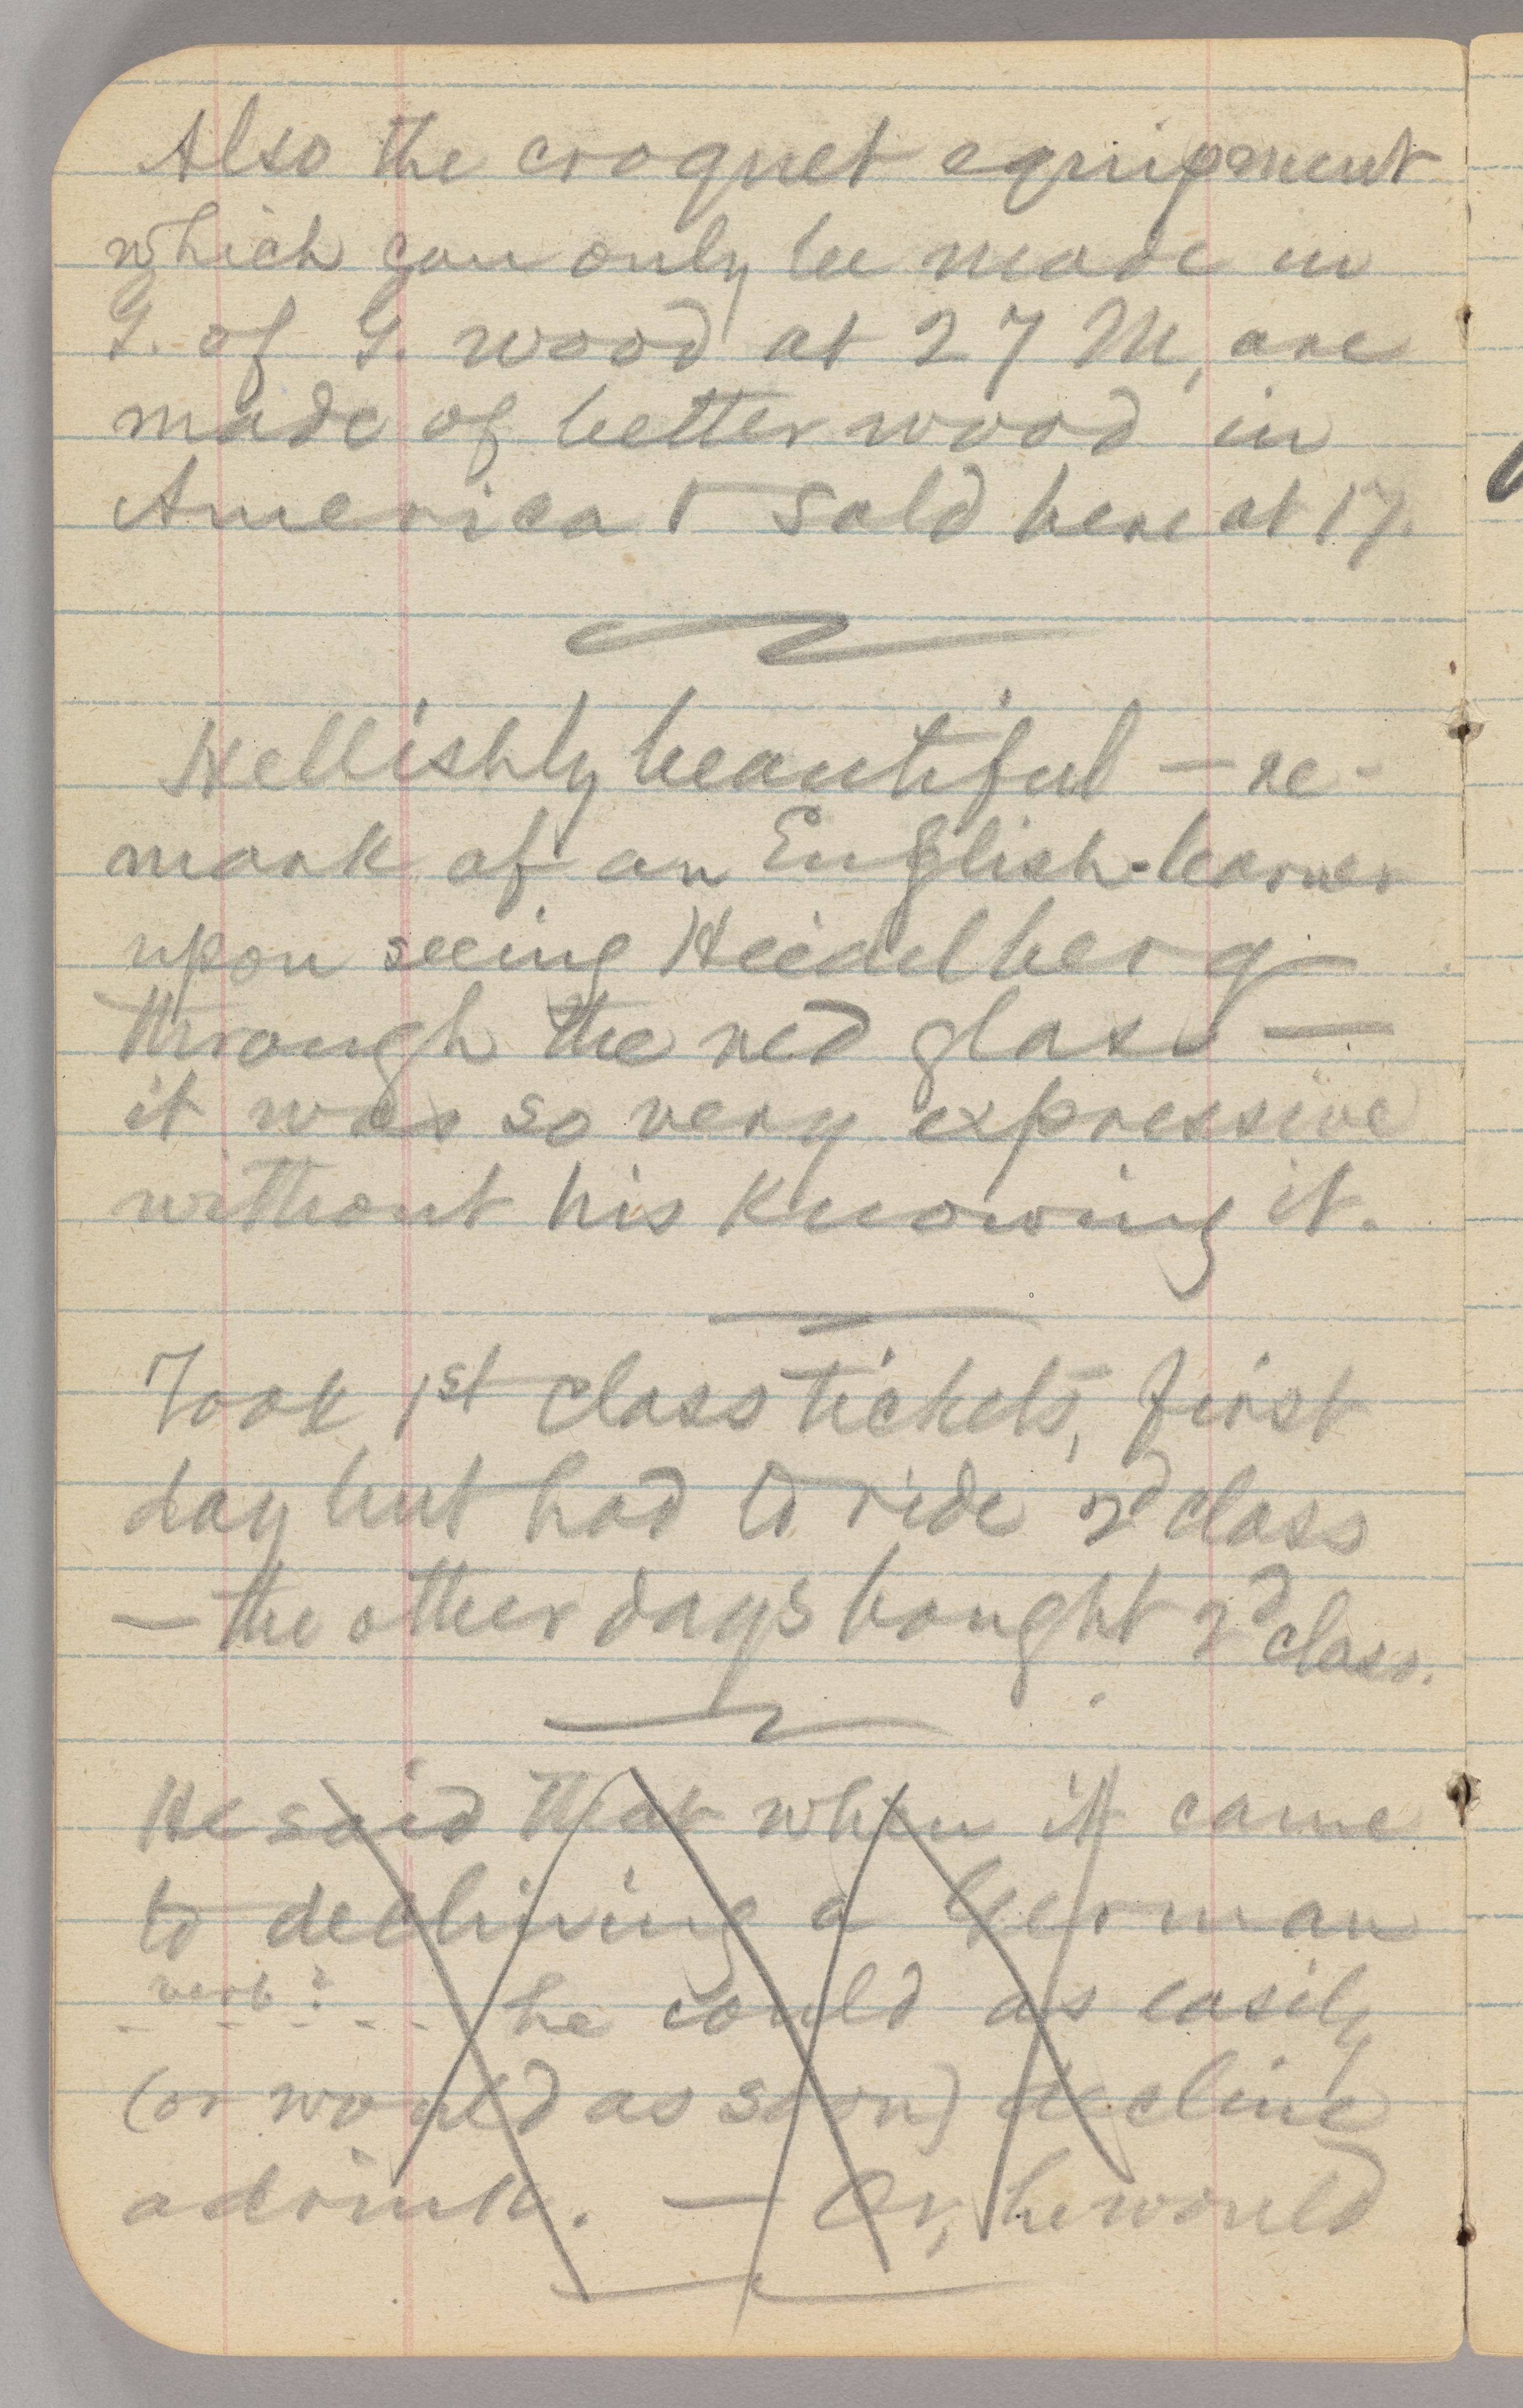 Also the croquet equipment
which can only be made in
G. of G. wood at 27 M, are
made of better wood in
America & sold here at 17.
Hellishly beautiful — re-
mark of an English-learner
upon seeing Heidelberg
through the red glass —
it was so very expressive
without his knowing it.
Took 1st class tickets, first
day but had to ride 2d class
— the other days bought 2d class.
He said that when it came
to declining a German
verb: he could as easily
(or would as soon) decline
a drink. — Or, he would